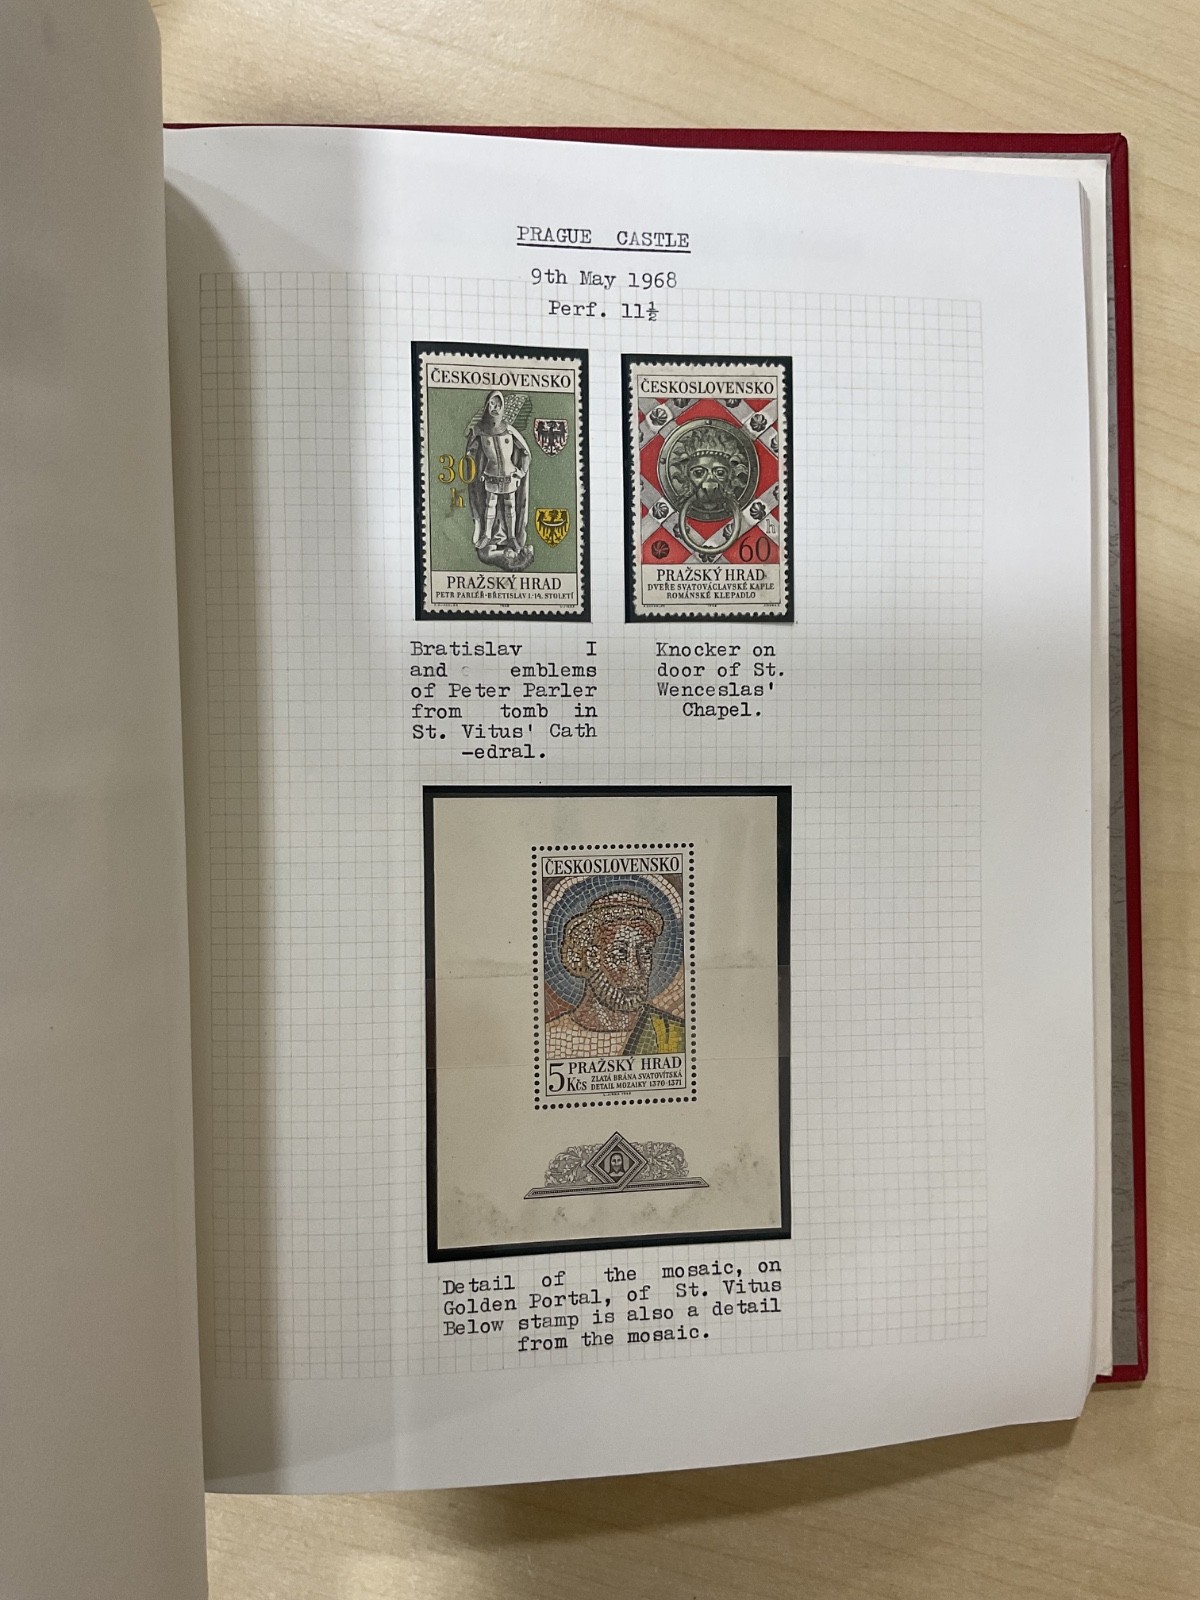 PRAGUE CASTLE
9th May 1968
Perf. 11½
ČESKOSLOVENSKO
30
h
PRAŽSKÝ HRAD
PETR PARLÉŘ-BŘETISLAV I.-14. STOLETÍ
ČESKOSLOVENSKO
h
60
PRAŽSKÝ HRAD
DVEŘE SVATOVÁCLAVSKÉ KAPLE
ROMÁNSKÉ KLEPADLO
Bratislav I
and emblems
of Peter Parler
from tomb in
St. Vitus' Cath
-edral.
Knocker on
door of St.
Wenceslas'
Chapel.
ČESKOSLOVENSKO
5 Kčs
PRAŽSKÝ HRAD
ZLATÁ BRÁNA SVATOVÍTSKÁ
DETAIL MOZAIKY 1370-1371
Detail of the mosaic, on
Golden Portal, of St. Vitus
Below stamp is also a detail
from the mosaic.